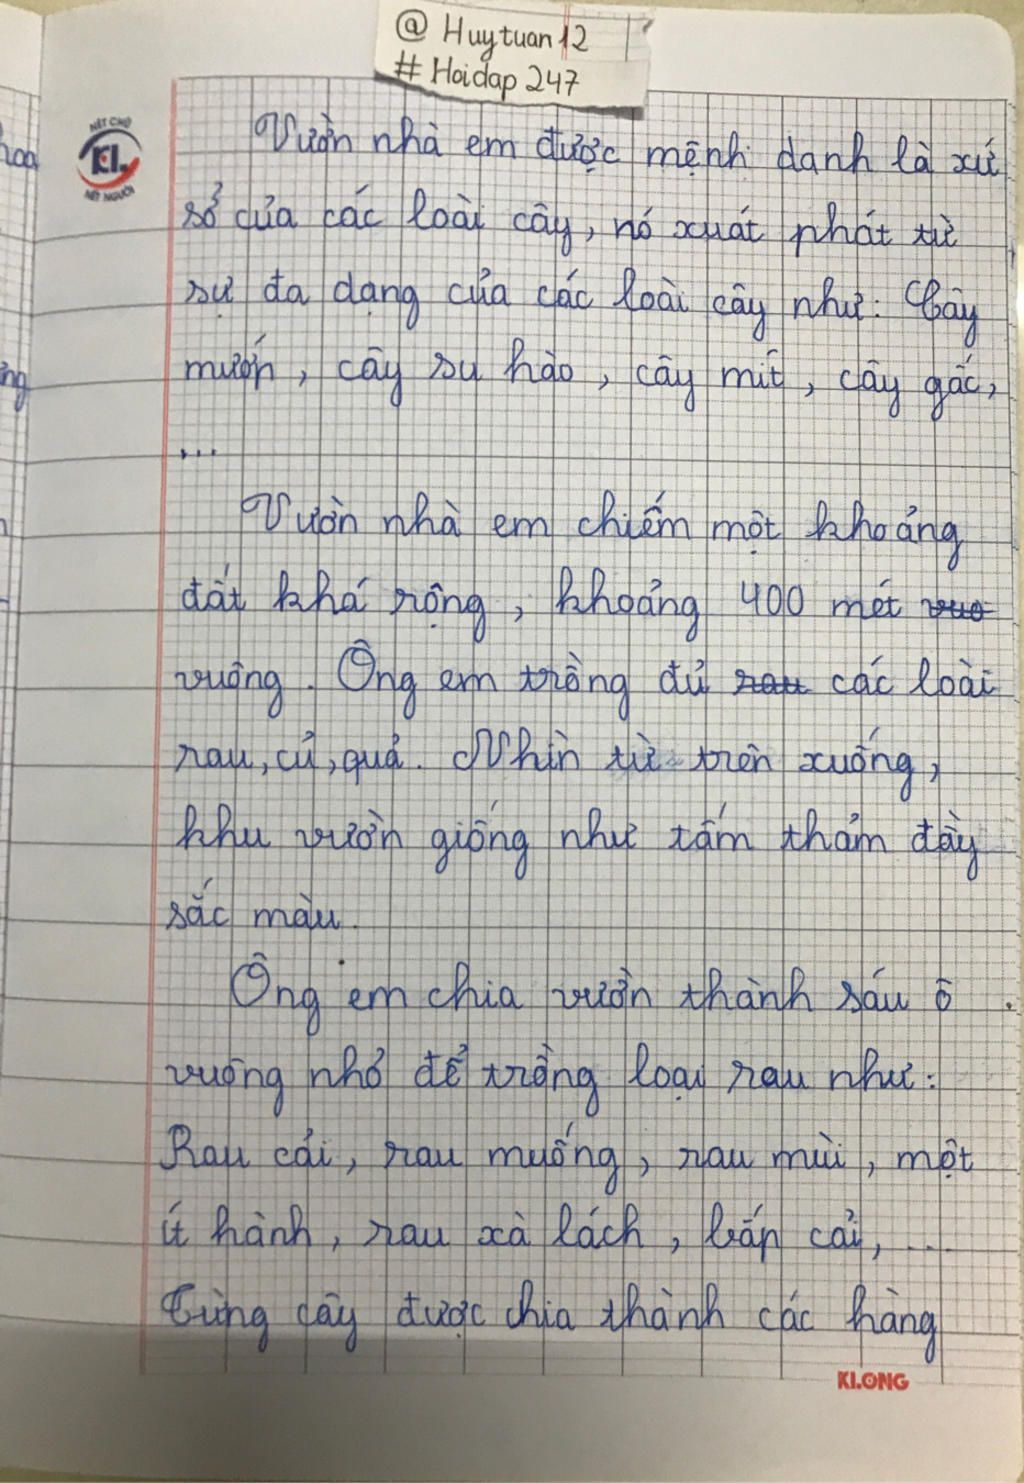 @ Huytuan12
# Hoidap 247
NÉT CHỮ
KL
NẾT NGƯỜI
hoa
Vườn nhà em được mệnh danh là xứ
sở của các loài cây, nó xuất phát từ
sự đa dạng của các loài cây như: Cây
mướp, cây su hào, cây mít, cây gấc,
...
Vườn nhà em chiếm một khoảng
đất khá rộng, khoảng 400 mét vuo
vuông. Ông em trồng đủ rau các loài
rau, củ, quả. Nhìn từ trên xuống,
khu vườn giống như tấm thảm đầy
sắc màu.
Ông em chia vườn thành sáu ô
vuông nhỏ để trồng loại rau như:
Rau cải, rau muống, rau mùi, một
ít hành, rau xà lách, bắp cải, ...
Từng cây được chia thành các hàng
KLONG